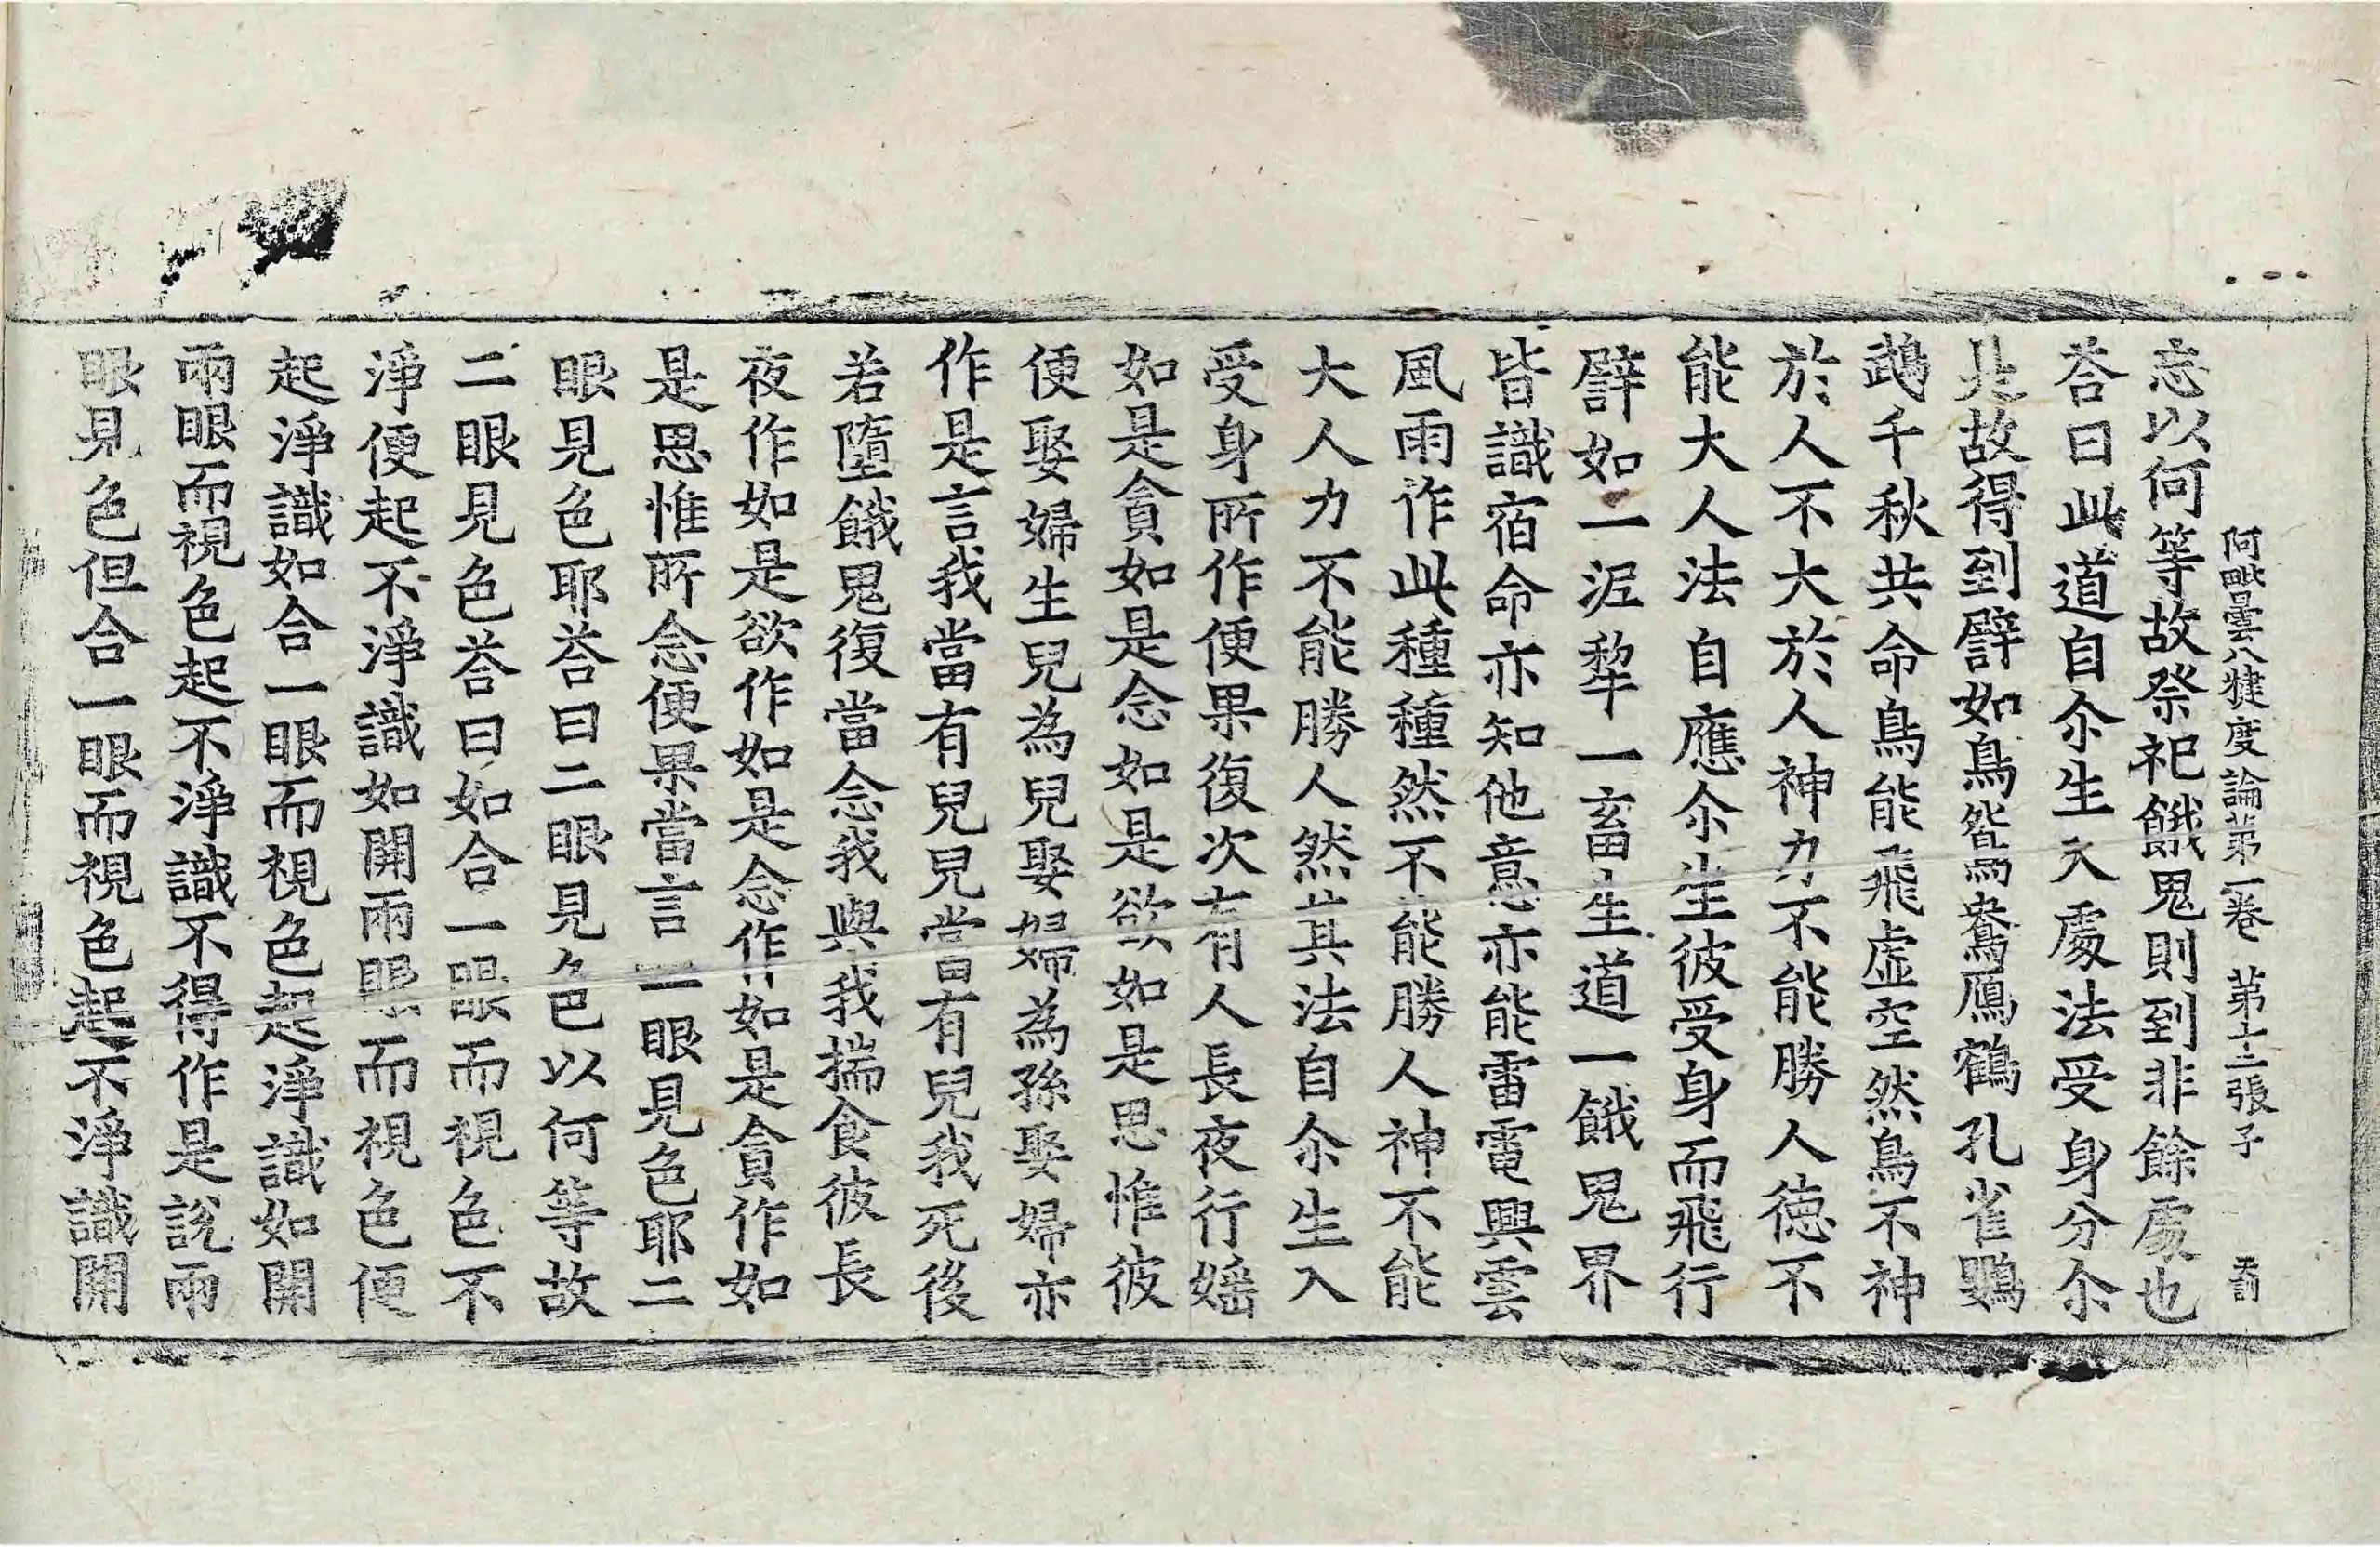 阿毗曇八犍度論第一卷 第十二張 子
忘以何等故祭祀餓鬼則到非餘處也
荅曰此道自尒生入處法受身分尒
此故得到譬如鳥鴛鴦鴈鶴孔雀鸚
鵡千秋共命鳥能飛虛空然鳥不神
於人不大於人神力不能勝人德不
能大人法自應尒生彼受身而飛行
譬如一泥犂一畜生道一餓鬼界
皆識宿命亦知他意亦能雷電興雲
風雨作此種種然不能勝人神不能
大人力不能勝人然其法自尒生入
受身所作便果復次有人長夜行婬
如是貪如是念如是欲如是思惟彼
便娶婦生兒為兒娶婦為孫娶婦亦
作是言我當有兒兒當有兒我死後
若墮餓鬼復當念我與我揣食彼長
夜作如是欲作如是念作如是貪作如
是思惟所念便果當言一眼見色耶二
眼見色耶荅曰二眼見色以何等故
二眼見色荅曰如合一眼而視色不
淨便起不淨識如開兩眼而視色便
起淨識如合一眼而視色起淨識如開
兩眼而視色起不淨識不得作是說兩
眼見色但合一眼而視色起不淨識開